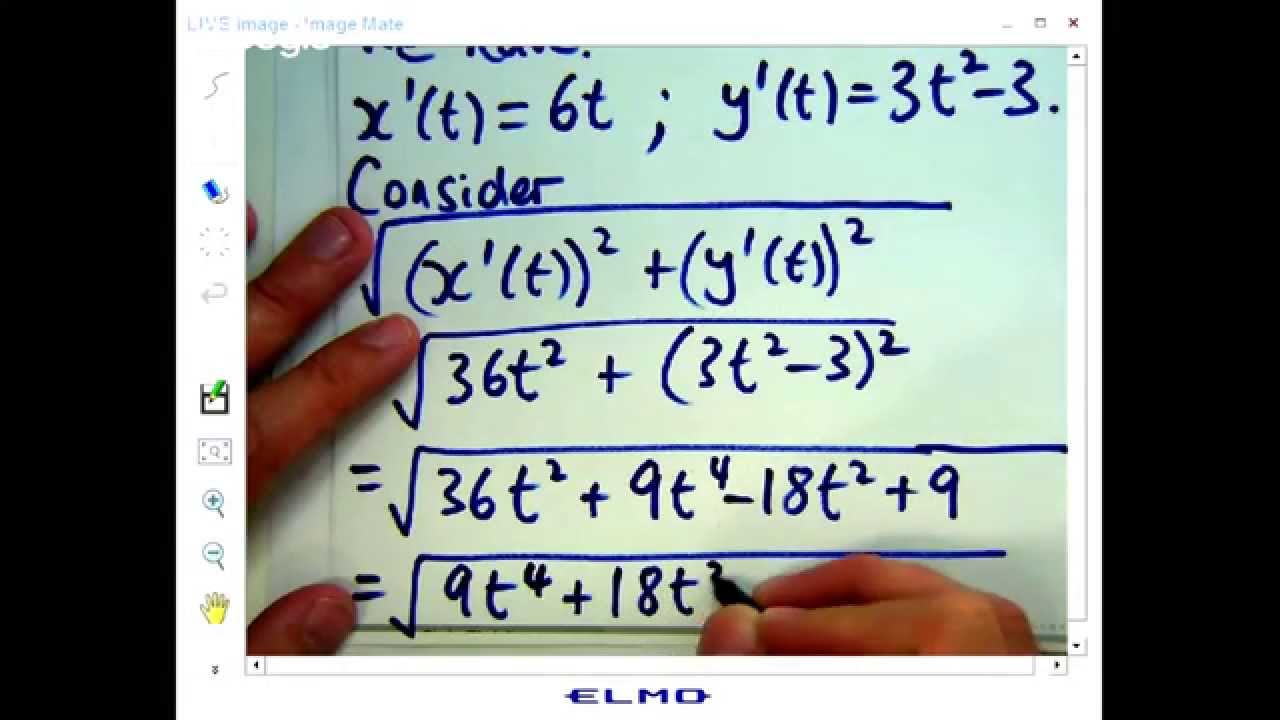 LIVE image - Image Mate
x'(t) = 6t ; y'(t) = 3t² - 3.
Consider
√((x'(t))² + (y'(t))²)
√(36t² + (3t² - 3)²)
= √(36t² + 9t⁴ - 18t² + 9
= √(9t⁴ + 18t²
ELMO